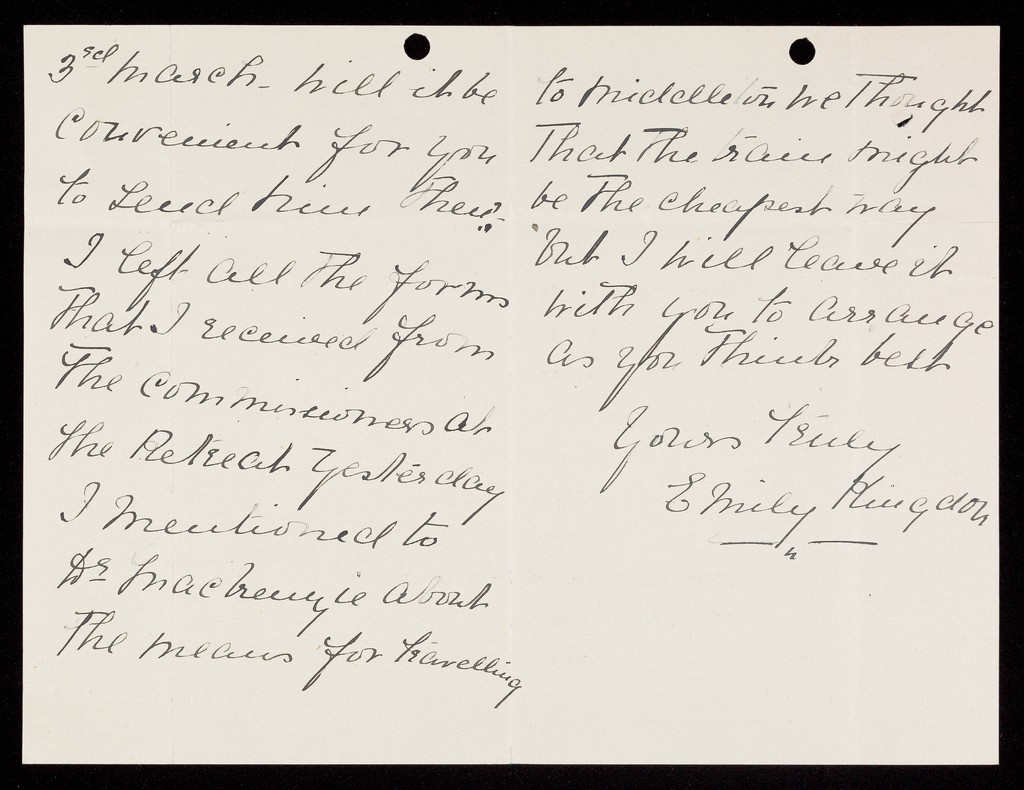 3rd March - Will it be
convenient for you
to send him then?
I left all the forms
that I received from
the Commissioners at
the Retreat Yesterday
I mentioned to
Dr Mackenzie about
the means for travelling
to Middleton we Thought
that the train might
be the cheapest way
but I will leave it
with you to arrange
as you think best
Yours truly
Emily Kingdon